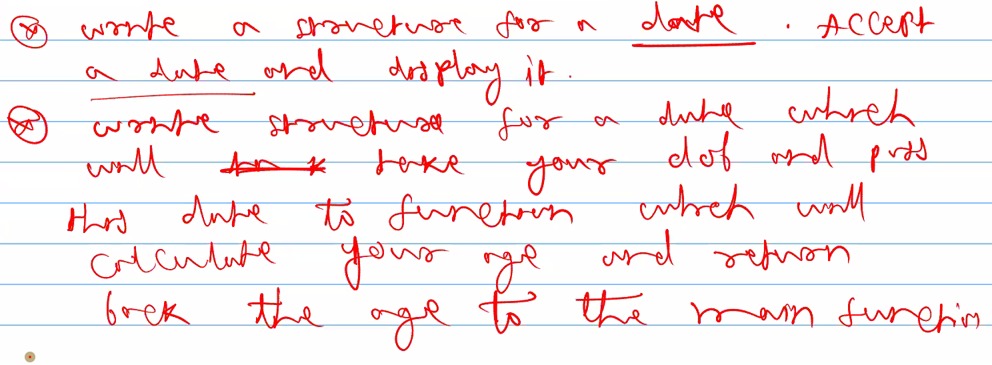 write a structure for a date. Accept
a date and display it.
write structure for a date which
will take your dob and pass
this date to function which will
calculate your age and return
back the age to the main function